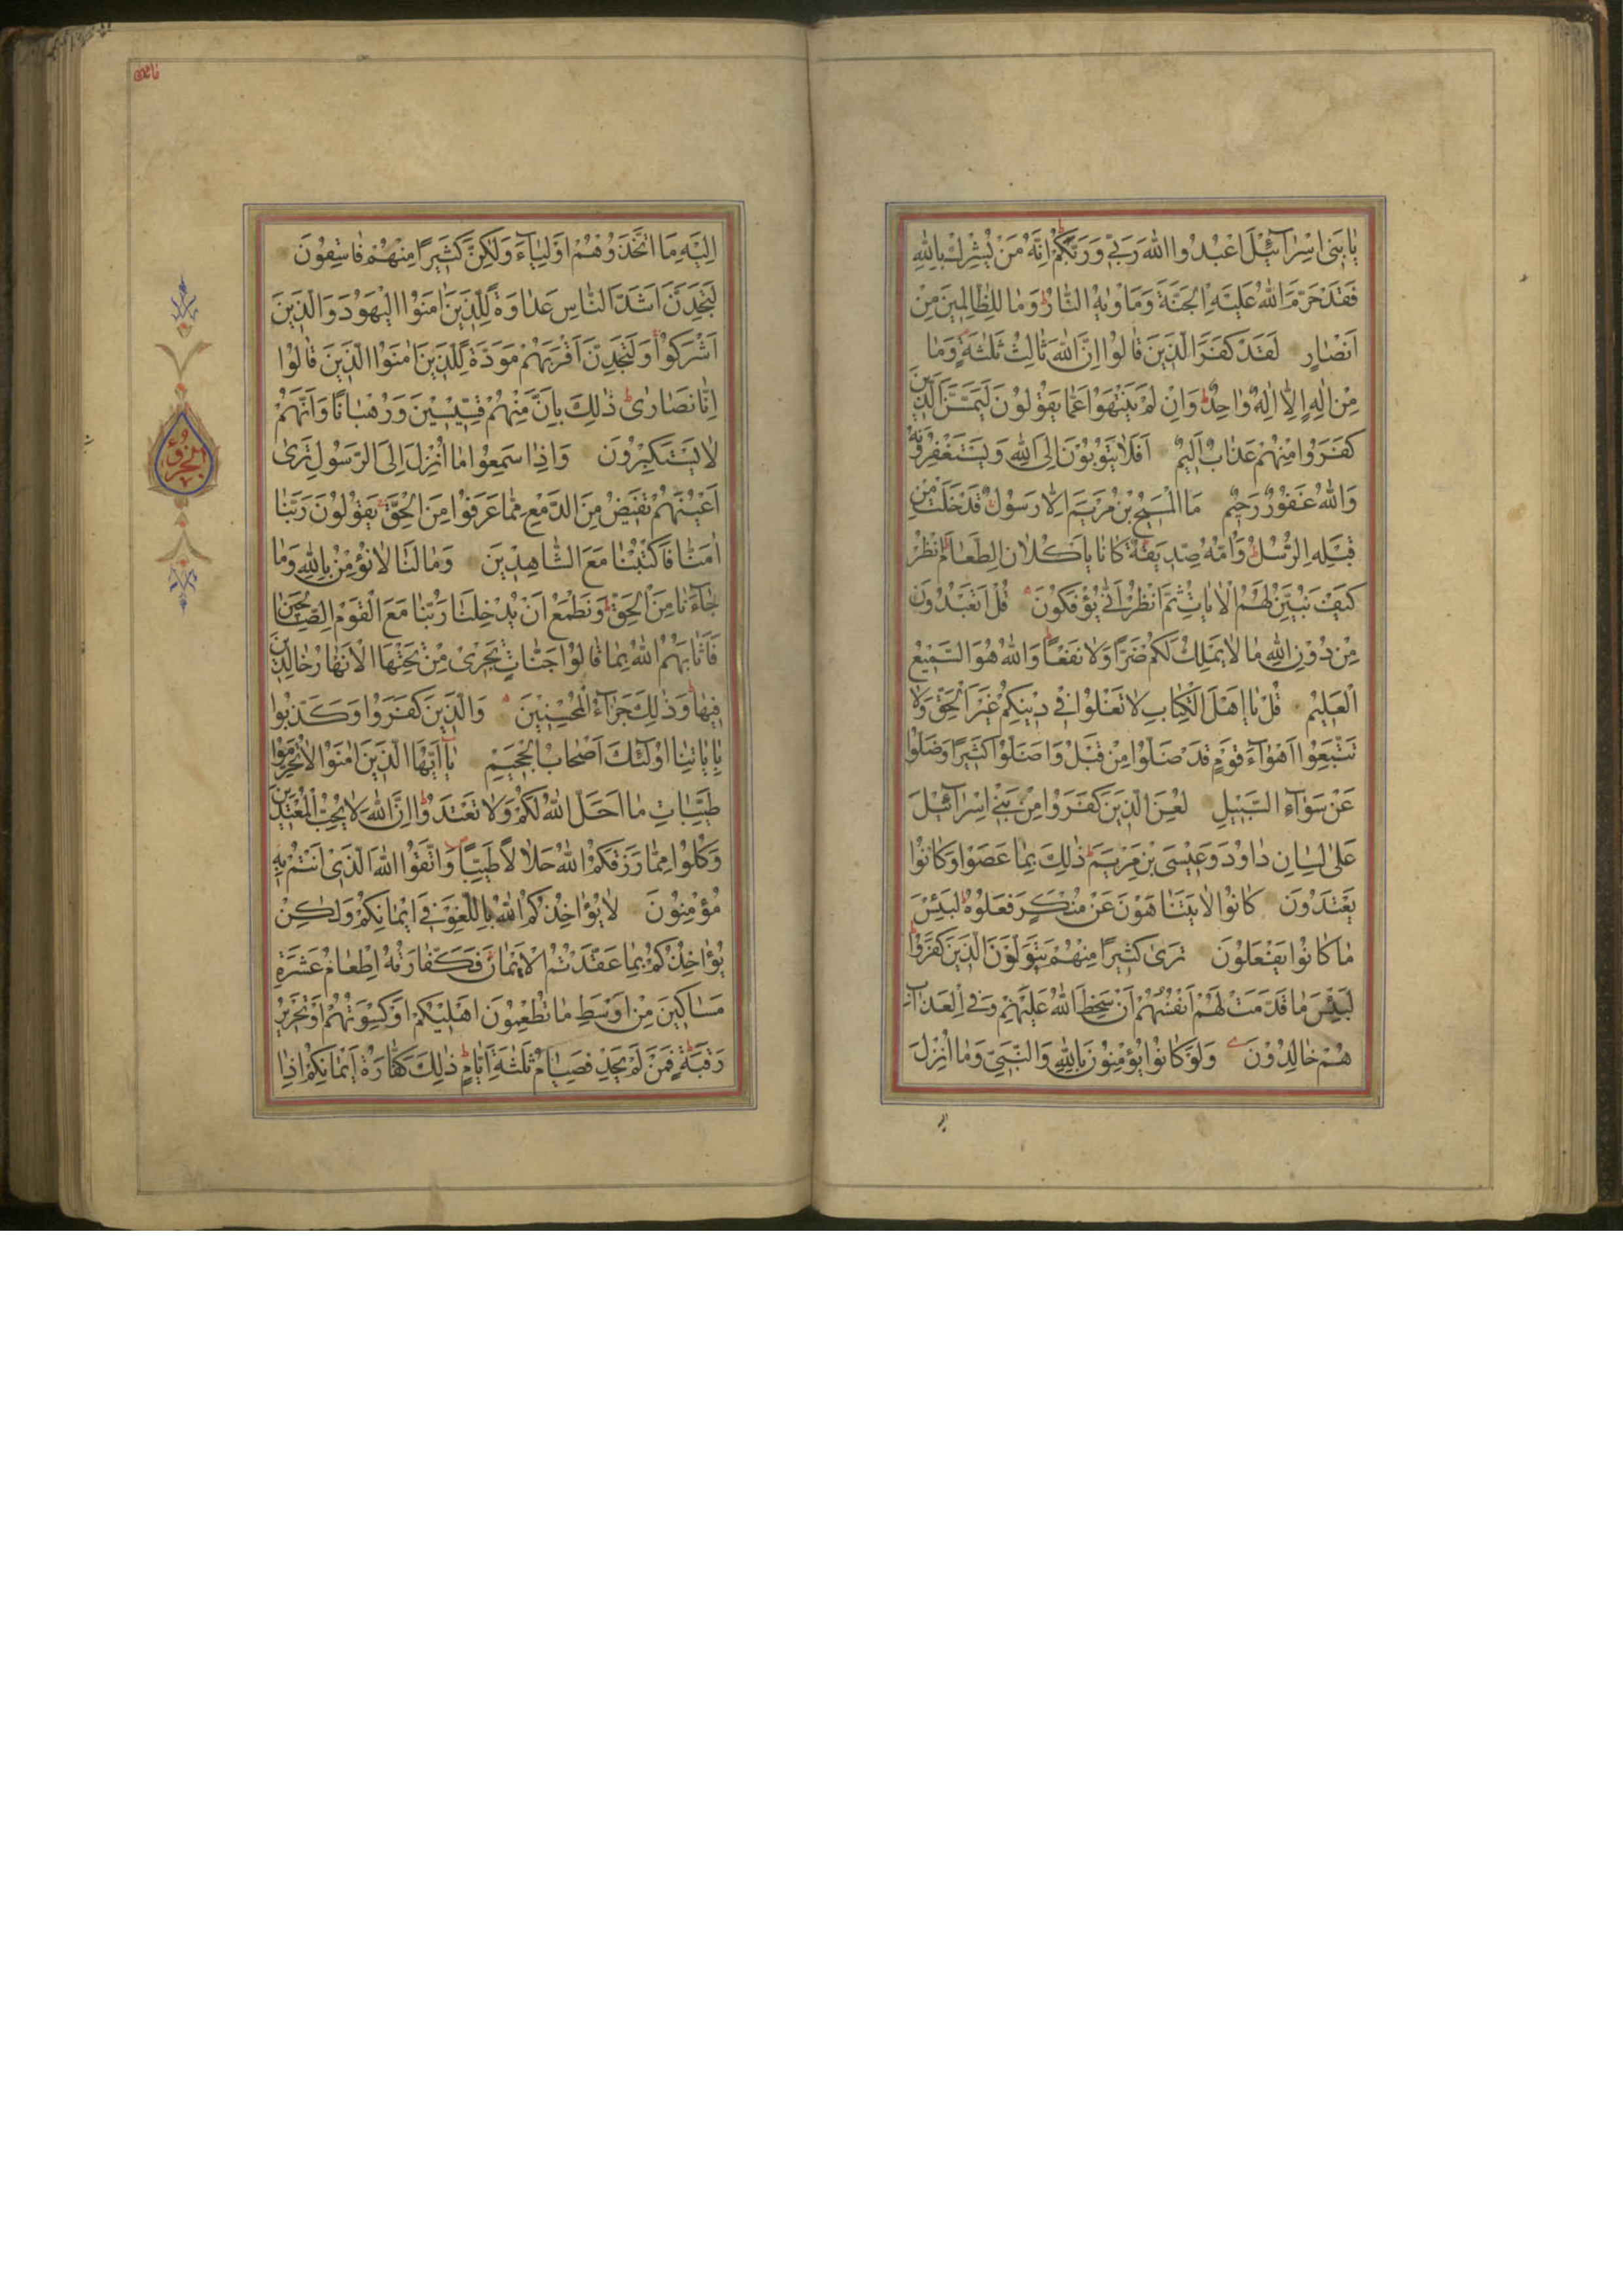 يَا بَنِي اِسْرَآئِيلَ اعْبُدُوا اللهَ رَبِّي وَرَبَّكُمْ اِنَّهُ مَنْ يُشْرِكْ بِاللهِ
فَقَدْ حَرَّمَ اللهُ عَلَيْهِ الْجَنَّةَ وَمَأْوٰيهُ النَّارُ وَمَا لِلظَّالِمِينَ مِنْ
اَنْصَارٍ لَقَدْ كَفَرَ الَّذِينَ قَالُوا اِنَّ اللهَ ثَالِثُ ثَلٰثَةٍ وَمَا
مِنْ اِلٰهٍ اِلَّا اِلٰهٌ وَاحِدٌ وَاِنْ لَمْ يَنْتَهُوا عَمَّا يَقُولُونَ لَيَمَسَّنَّ الَّذِينَ
كَفَرُوا مِنْهُمْ عَذَابٌ اَلِيمٌ اَفَلَا يَتُوبُونَ اِلَى اللهِ وَيَسْتَغْفِرُونَهُ
وَاللهُ غَفُورٌ رَحِيمٌ مَا الْمَسِيحُ بْنُ مَرْيَمَ اِلَّا رَسُولٌ قَدْ خَلَتْ مِنْ
قَبْلِهِ الرُّسُلُ وَاُمُّهُ صِدِّيقَةٌ كَانَا يَاْكُلَانِ الطَّعَامَ اُنْظُرْ
كَيْفَ نُبَيِّنُ لَهُمُ الْاٰيَاتِ ثُمَّ انْظُرْ اَنّٰى يُؤْفَكُونَ قُلْ اَتَعْبُدُونَ
مِنْ دُونِ اللهِ مَا لَا يَمْلِكُ لَكُمْ ضَرًّا وَلَا نَفْعًا وَاللهُ هُوَ السَّمِيعُ
الْعَلِيمُ قُلْ يَا اَهْلَ الْكِتَابِ لَا تَغْلُوا فِي دِينِكُمْ غَيْرَ الْحَقِّ وَلَا
تَتَّبِعُوا اَهْوَآءَ قَوْمٍ قَدْ ضَلُّوا مِنْ قَبْلُ وَاَضَلُّوا كَثِيرًا وَضَلُّوا
عَنْ سَوَآءِ السَّبِيلِ لُعِنَ الَّذِينَ كَفَرُوا مِنْ بَنِي اِسْرَآئِيلَ
عَلٰى لِسَانِ دَاوُدَ وَعِيسَى بْنِ مَرْيَمَ ذٰلِكَ بِمَا عَصَوْا وَكَانُوا
يَعْتَدُونَ كَانُوا لَا يَتَنَاهَوْنَ عَنْ مُنْكَرٍ فَعَلُوهُ لَبِئْسَ
مَا كَانُوا يَفْعَلُونَ تَرٰى كَثِيرًا مِنْهُمْ يَتَوَلَّوْنَ الَّذِينَ كَفَرُوا
لَبِئْسَ مَا قَدَّمَتْ لَهُمْ اَنْفُسُهُمْ اَنْ سَخِطَ اللهُ عَلَيْهِمْ وَفِي الْعَذَابِ
هُمْ خَالِدُونَ وَلَوْ كَانُوا يُؤْمِنُونَ بِاللهِ وَالنَّبِيِّ وَمَا اُنْزِلَ
اِلَيْهِ مَا اتَّخَذُوهُمْ اَوْلِيَآءَ وَلٰكِنَّ كَثِيرًا مِنْهُمْ فَاسِقُونَ
لَتَجِدَنَّ اَشَدَّ النَّاسِ عَدَاوَةً لِلَّذِينَ اٰمَنُوا الْيَهُودَ وَالَّذِينَ
اَشْرَكُوا وَلَتَجِدَنَّ اَقْرَبَهُمْ مَوَدَّةً لِلَّذِينَ اٰمَنُوا الَّذِينَ قَالُوا
اِنَّا نَصَارٰى ذٰلِكَ بِاَنَّ مِنْهُمْ قِسِّيسِينَ وَرُهْبَانًا وَاَنَّهُمْ
لَا يَسْتَكْبِرُونَ وَاِذَا سَمِعُوا مَا اُنْزِلَ اِلَى الرَّسُولِ تَرٰى
اَعْيُنَهُمْ تَفِيضُ مِنَ الدَّمْعِ مِمَّا عَرَفُوا مِنَ الْحَقِّ يَقُولُونَ رَبَّنَا
اٰمَنَّا فَاكْتُبْنَا مَعَ الشَّاهِدِينَ وَمَا لَنَا لَا نُؤْمِنُ بِاللهِ وَمَا
جَآءَنَا مِنَ الْحَقِّ وَنَطْمَعُ اَنْ يُدْخِلَنَا رَبُّنَا مَعَ الْقَوْمِ الصَّالِحِينَ
فَاَثَابَهُمُ اللهُ بِمَا قَالُوا جَنَّاتٍ تَجْرِي مِنْ تَحْتِهَا الْاَنْهَارُ خَالِدِينَ
فِيهَا وَذٰلِكَ جَزَآءُ الْمُحْسِنِينَ وَالَّذِينَ كَفَرُوا وَكَذَّبُوا
بِاٰيَاتِنَا اُولٰئِكَ اَصْحَابُ الْجَحِيمِ يَآ اَيُّهَا الَّذِينَ اٰمَنُوا لَا تُحَرِّمُوا
طَيِّبَاتِ مَا اَحَلَّ اللهُ لَكُمْ وَلَا تَعْتَدُوا اِنَّ اللهَ لَا يُحِبُّ الْمُعْتَدِينَ
وَكُلُوا مِمَّا رَزَقَكُمُ اللهُ حَلَالًا طَيِّبًا وَاتَّقُوا اللهَ الَّذِي اَنْتُمْ بِهِ
مُؤْمِنُونَ لَا يُؤَاخِذُكُمُ اللهُ بِاللَّغْوِ فِي اَيْمَانِكُمْ وَلٰكِنْ
يُؤَاخِذُكُمْ بِمَا عَقَّدْتُمُ الْاَيْمَانَ فَكَفَّارَتُهُ اِطْعَامُ عَشَرَةِ
مَسَاكِينَ مِنْ اَوْسَطِ مَا تُطْعِمُونَ اَهْلِيكُمْ اَوْ كِسْوَتُهُمْ اَوْ تَحْرِيرُ
رَقَبَةٍ فَمَنْ لَمْ يَجِدْ فَصِيَامُ ثَلٰثَةِ اَيَّامٍ ذٰلِكَ كَفَّارَةُ اَيْمَانِكُمْ اِذَا